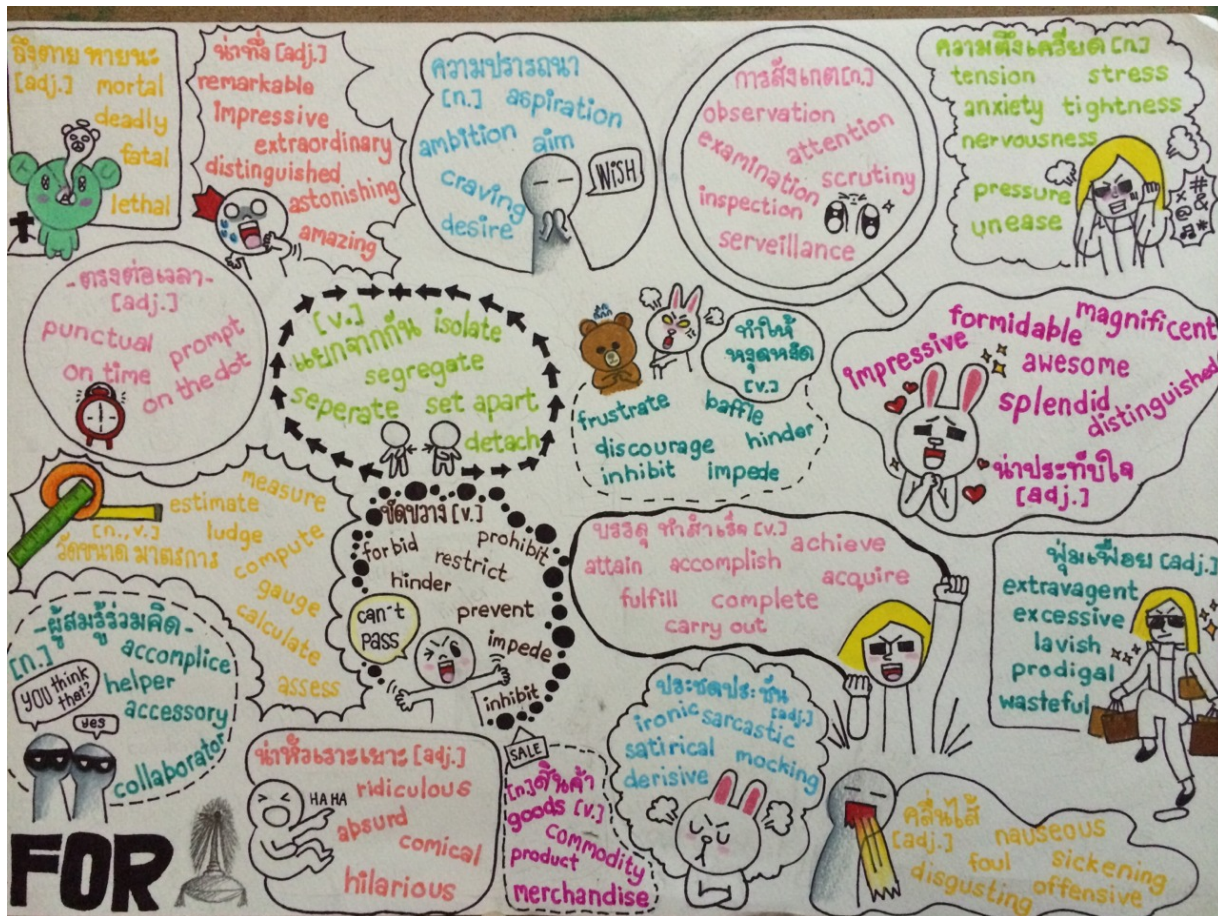 ถึงตาย หายนะ
[adj.] mortal
deadly
fatal
lethal
น่าทึ่ง [adj.]
remarkable
impressive
extraordinary
distinguished
astonishing
amazing
ความปรารถนา
[n.] aspiration
ambition aim
craving
desire
WISH!
การสังเกต[n.]
observation
attention
examination
scrutiny
inspection
serveillance
ความตึงเครียด [n.]
tension stress
anxiety tightness
nervousness
pressure
unease
-ตรงต่อเวลา-
[adj.]
punctual prompt
on time on the dot
[v.]
แยกจากกัน isolate
segregate
seperate set apart
detach
ทำให้
หงุดหงิด
[v.]
frustrate baffle
discourage hinder
inhibit impede
impressive formidable magnificent
awesome
splendid
distinguished
น่าประทับใจ
[adj.]
measure
estimate
[n., v.] ludge
วัดขนาด มาตรการ compute
gauge
calculate
assess
ขัดขวาง [v.]
forbid prohibit
restrict
hinder
prevent
can't
pass
impede
inhibit
บรรลุ ทำสำเร็จ [v.] achieve
attain accomplish
acquire
fulfill complete
carry out
ฟุ่มเฟือย [adj.]
extravagent
excessive
lavish
prodigal
wasteful
-ผู้สมรู้ร่วมคิด-
[n.] accomplice
helper
accessory
collaborator
YOU think
that?
yes
น่าหัวเราะเยาะ [adj.]
HA HA
ridiculous
absurd
comical
hilarious
SALE
[n.] สินค้า
goods [v.]
commodity
product
merchandise
ประชดประชัน
[adj.]
ironic sarcastic
satirical mocking
derisive
คลื่นไส้
[adj.] nauseous
foul sickening
disgusting offensive
FOR